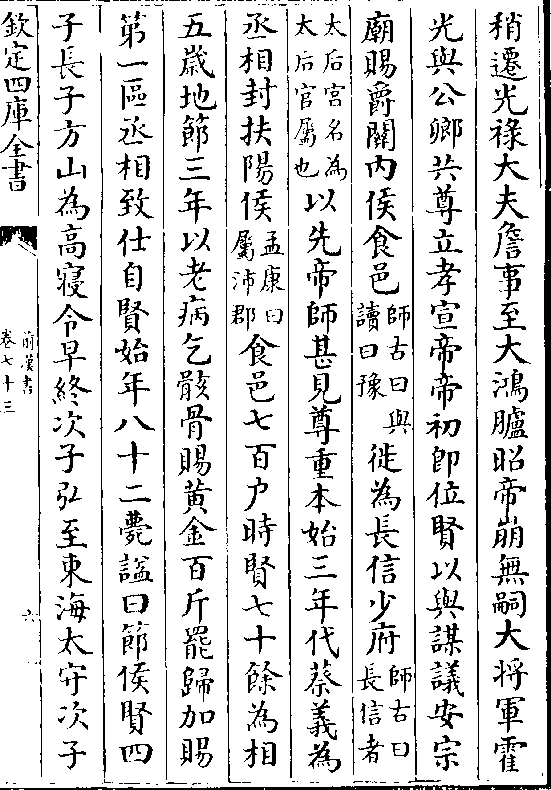 稍遷光祿大夫詹事至大鴻臚昭帝崩無嗣大將軍霍
光與公卿共尊立孝宣帝帝初即位賢以與謀議安宗
廟賜爵關內侯食邑師古曰與讀曰豫徙為長信少府師古曰長信者
太后宮名為太后官屬也以先帝師甚見尊重本始三年代蔡義為
丞相封扶陽侯孟康曰屬沛郡食邑七百户時賢七十餘為相
五歲地節三年以老病乞骸骨賜黃金百斤罷歸加賜
第一區丞相致仕自賢始年八十二薨謚曰節侯賢四
子長子方山為高寢令早終次子弘至東海太守次子
欽定四庫全書
前漢書
卷七十三
六